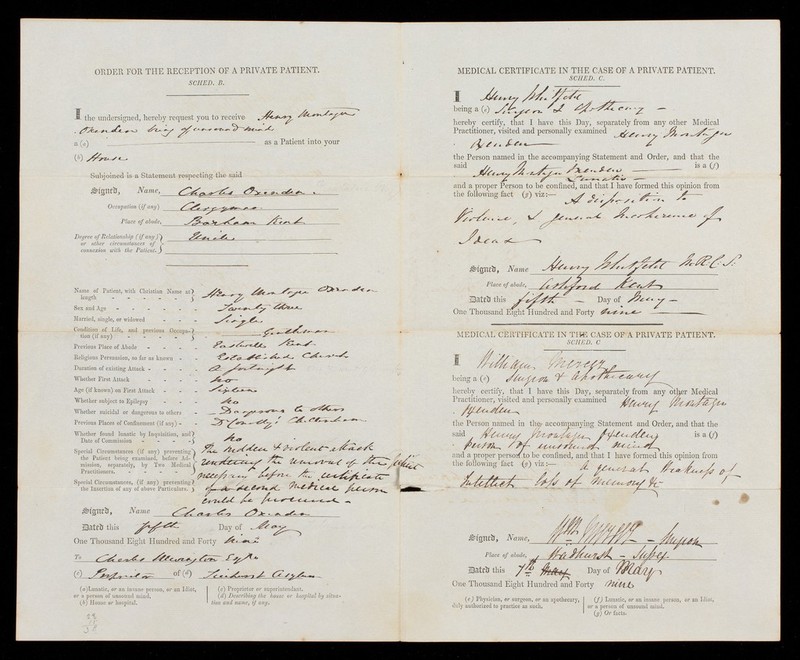 ORDER FOR THE RECEPTION OF A PRIVATE PATIENT.
SCHED. B.
I the undersigned, hereby request you to receive Henry Montagu
Oxenden being of unsound mind
a (a) as a Patient into your
(b) House
Subjoined is a Statement respecting the said
Signed, Name, Charles Oxenden
Occupation (if any) Clergyman
Place of abode, Barham Kent
Degree of Relationship (if any,)
or other circumstances of
connexion with the Patient. Uncle
Name of Patient, with Christian Name at
length Henry Montagu Oxenden
Sex and Age Twenty three
Married, single, or widowed Single
Condition of Life, and previous Occupa-
tion (if any) Gentleman
Previous Place of Abode Eastwell Kent
Religious Persuasion, so far as known Established Church
Duration of existing Attack A fortnight
Whether First Attack No
Age (if known) on First Attack Sixteen
Whether subject to Epilepsy No
Whether suicidal or dangerous to others Dangerous to others
Previous Places of Confinement (if any) Dr Conolly's
Whether found lunatic by Inquisition, and
Date of Commission No
Special Circumstances (if any) preventing
the Patient being examined, before Ad-
mission, separately, by Two Medical
Practitioners.
The sudden & violent attack
rendering the removal of the patient
necessary before the certificate
Special Circumstances, (if any) preventing
the Insertion of any of above Particulars.
of a second Medical person
could be procured
Signed, Name Charles Oxenden
Dated this fifth Day of May
One Thousand Eight Hundred and Forty nine
To Charles Newington Esqre
(c) Proprietor of (d) Ticehurst Asylum
(a) Lunatic, or an insane person, or an Idiot,
or a person of unsound mind.
(b) House or hospital.
(c) Proprietor or superintendant.
(d) Describing the house or hospital by situa-
tion and name, if any.
MEDICAL CERTIFICATE IN THE CASE OF A PRIVATE PATIENT.
SCHED. C.
I Henry Whitfeld
being a (e) Surgeon & Apothecary
hereby certify, that I have this Day, separately from any other Medical
Practitioner, visited and personally examined Henry Montagu
Oxenden
the Person named in the accompanying Statement and Order, and that the
said Henry Montagu Oxenden is a (f)
Lunatic
and a proper Person to be confined, and that I have formed this opinion from
the following fact (g) viz:— A disposition to
Violence, & general Incoherence of
Ideas
Signed, Name Henry Whitfeld M.R.C.S.
Place of abode, Ashford Kent
Dated this fifth Day of May
One Thousand Eight Hundred and Forty nine
MEDICAL CERTIFICATE IN THE CASE OF A PRIVATE PATIENT.
SCHED. C
I William Mercer
being a (e) Surgeon & apothecary
hereby certify, that I have this Day, separately from any other Medical
Practitioner, visited and personally examined Henry Montagu
Oxenden
the Person named in the accompanying Statement and Order, and that the
said Henry Montagu Oxenden is a (f)
person of unsound mind
and a proper person to be confined, and that I have formed this opinion from
the following fact (g) viz:— a general Weakness of
Intellect loss of memory &c
Signed, Name, Wm Mercer - Surgeon
Place of abode, Wadhurst - Sussex
Dated this 7th Day of May
One Thousand Eight Hundred and Forty nine
(e) Physician, or surgeon, or an apothecary,
duly authorized to practise as such.
(f) Lunatic, or an insane person, or an Idiot,
or a person of unsound mind.
(g) Or facts.